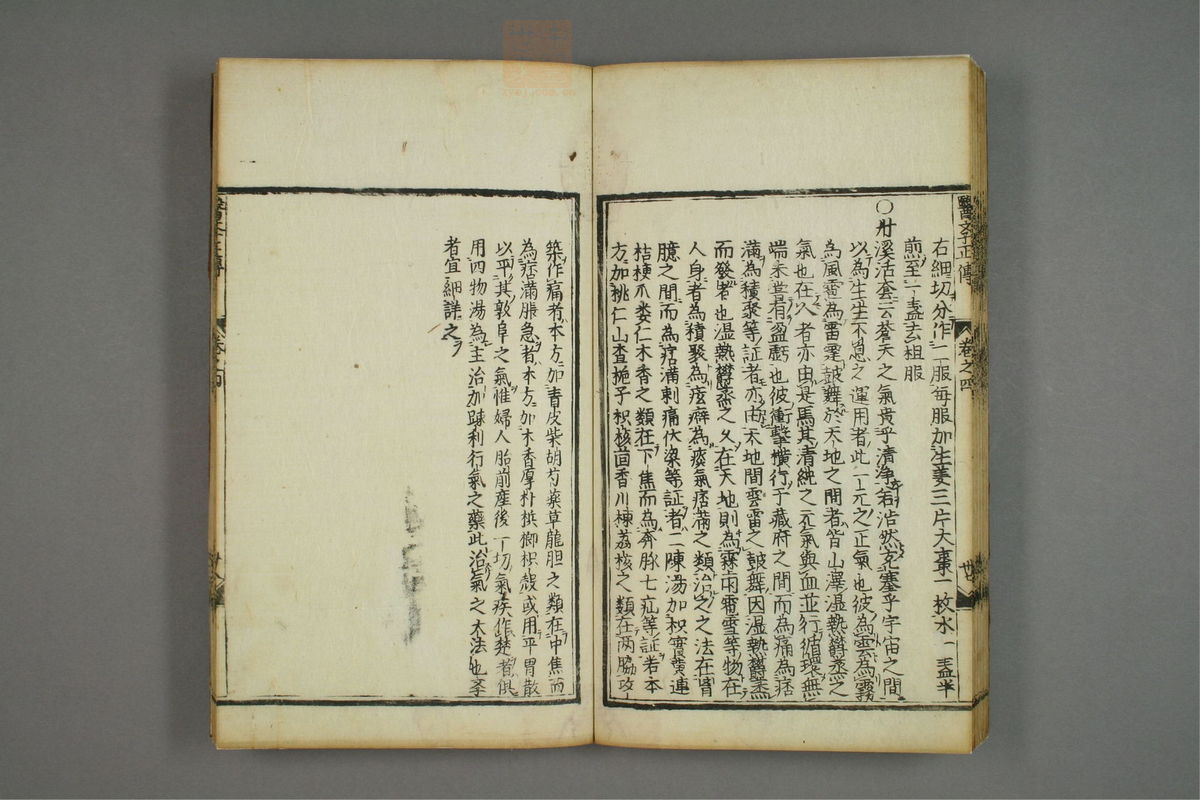 醫孝正傳
卷之四
右細切分作一服每服加生姜三片大棗一枚水一盞半
煎至一盞去粗服
○丹溪活套云蒼天之氣貴乎清浄若浩然充塞乎宇宙之間
以為生生不息之運用者此一元之正氣也彼為雲為霧
為風雷為雷霆皷舞於天地之間者皆山澤温熱欝蒸之
氣也在人者亦由是焉其清純之元氣與血並行循環無
端未甞有盈虧也彼衝擊横行于藏府之間而為痛為痞
滿為積聚等証者亦由天地間雲雷之皷舞因温熱欝蒸
而發者也温熱欝蒸之久在天地則為霖雨雹雪等物在
人身者為積聚為痃癖為痰氣痞滿之類治之之法在胃
臆之間而為痞滿刺痛伏梁等証者二陳湯加枳實黄連
桔梗爪蔞仁木香之類在下焦而為奔豚七疝等証若本
方加桃仁山査梔子枳核茴香川楝荔核之類在两脇攻
築作痛者本方加青皮柴胡芍藥草龍胆之類在中焦而
為痞滿脹急者本方加木香厚朴梹榔枳殻或用平胃散
以平其敦阜之氣惟婦人胎前產後一切氣疾作楚者俱
用四物湯為主治加踈利行氣之藥此治氣之大法也孝
者宜細詳之